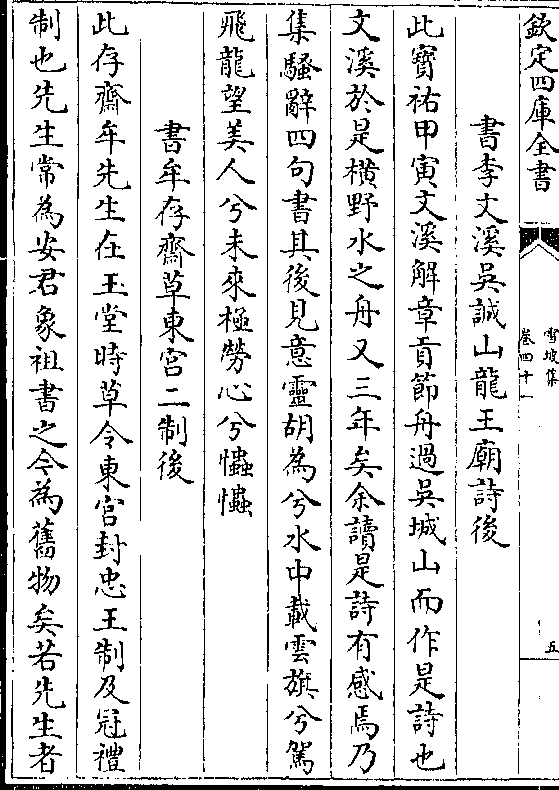 欽定四庫全書
雪坡集
卷四十一
五
書李文溪吳誠山龍王廟詩後
此寶祐甲寅文溪解章貢節舟過吳城山而作是詩也
文溪於是橫野水之舟又三年矣余讀是詩有感焉乃
集騷辭四句書其後見意靈胡為兮水中載雲旗兮駕
飛龍望美人兮未來極勞心兮𢥞𢥞
書牟存齋草東宮二制後
此存齋牟先生在玉堂時草今東宮封忠王制及冠禮
制也先生常為安君象祖書之今為舊物矣若先生者